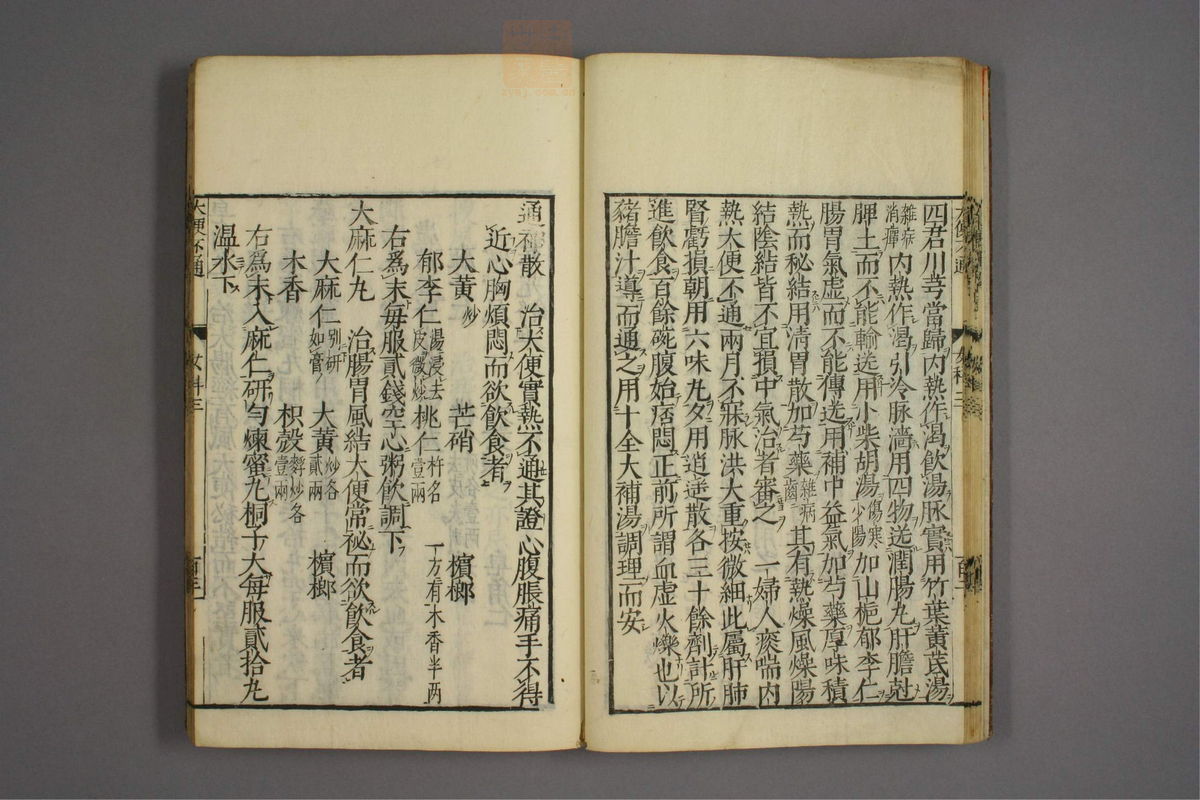 四君川芎當歸内熱作渴飲湯脉實用竹葉黄茋湯
雜病消癉内熱作渴引冷脉濇用四物送潤腸丸肝膽尅
脾土而不能輸送用小柴胡湯傷寒少陽加山梔郁李仁
腸胃氣虚而不能傳送用補中益氣加芍藥厚味積
熱而秘結用清胃散加芍藥雜病齒其有熱燥風燥陽
結陰結皆不宜損中氣治者審之 一婦人痰喘内
熱大便不通兩月不寐脉洪大重按微細此屬肝肺
腎虧損朝用六味丸夕用逍遥散各三十餘劑計所
進飲食百餘碗腹始痞悶正前所謂血虚火爍也以
猪膽汁導而通之用十全大補湯調理而安
大便不通
女科三
通神散 治大便實熱不通其證心腹脹痛手不得
近心胸煩悶而欲飲食者
大黄炒 芒硝 檳榔
郁李仁湯浸去皮微炒 桃仁杵各壹兩 一方有木香半两
右為末毎服貳錢空心粥飲調下
大麻仁丸 治腸胃風結大便常祕而欲飲食者
大麻仁别研如膏 大黄炒各貳兩 檳榔
木香 枳殻麩炒各壹兩
右為末入麻仁研匀煉蜜丸桐子大每服貳拾丸
温水下
大便不通
女科三